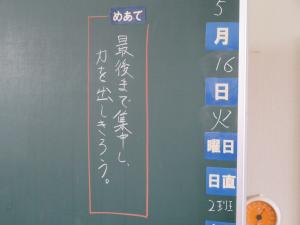 めあて
最後まで集中し、
力を出しきろう。
5
月
16
日
火
曜日
日直
2班